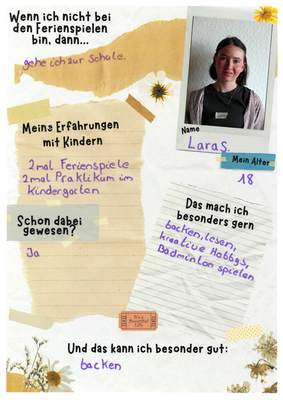 Wenn ich nicht bei
den Ferienspielen
bin, dann...
gehe ich zur Schule.
Name
Lara S.
Mein Alter
18
Meine Erfahrungen
mit Kindern
2mal Ferienspiele
2mal Praktikum im
Kindergarten
Schon dabei
gewesen?
Ja
Das mach ich
besonders gern
backen, lesen,
kreative Hobbys,
Badminton spielen
Und das kann ich besonder gut:
backen